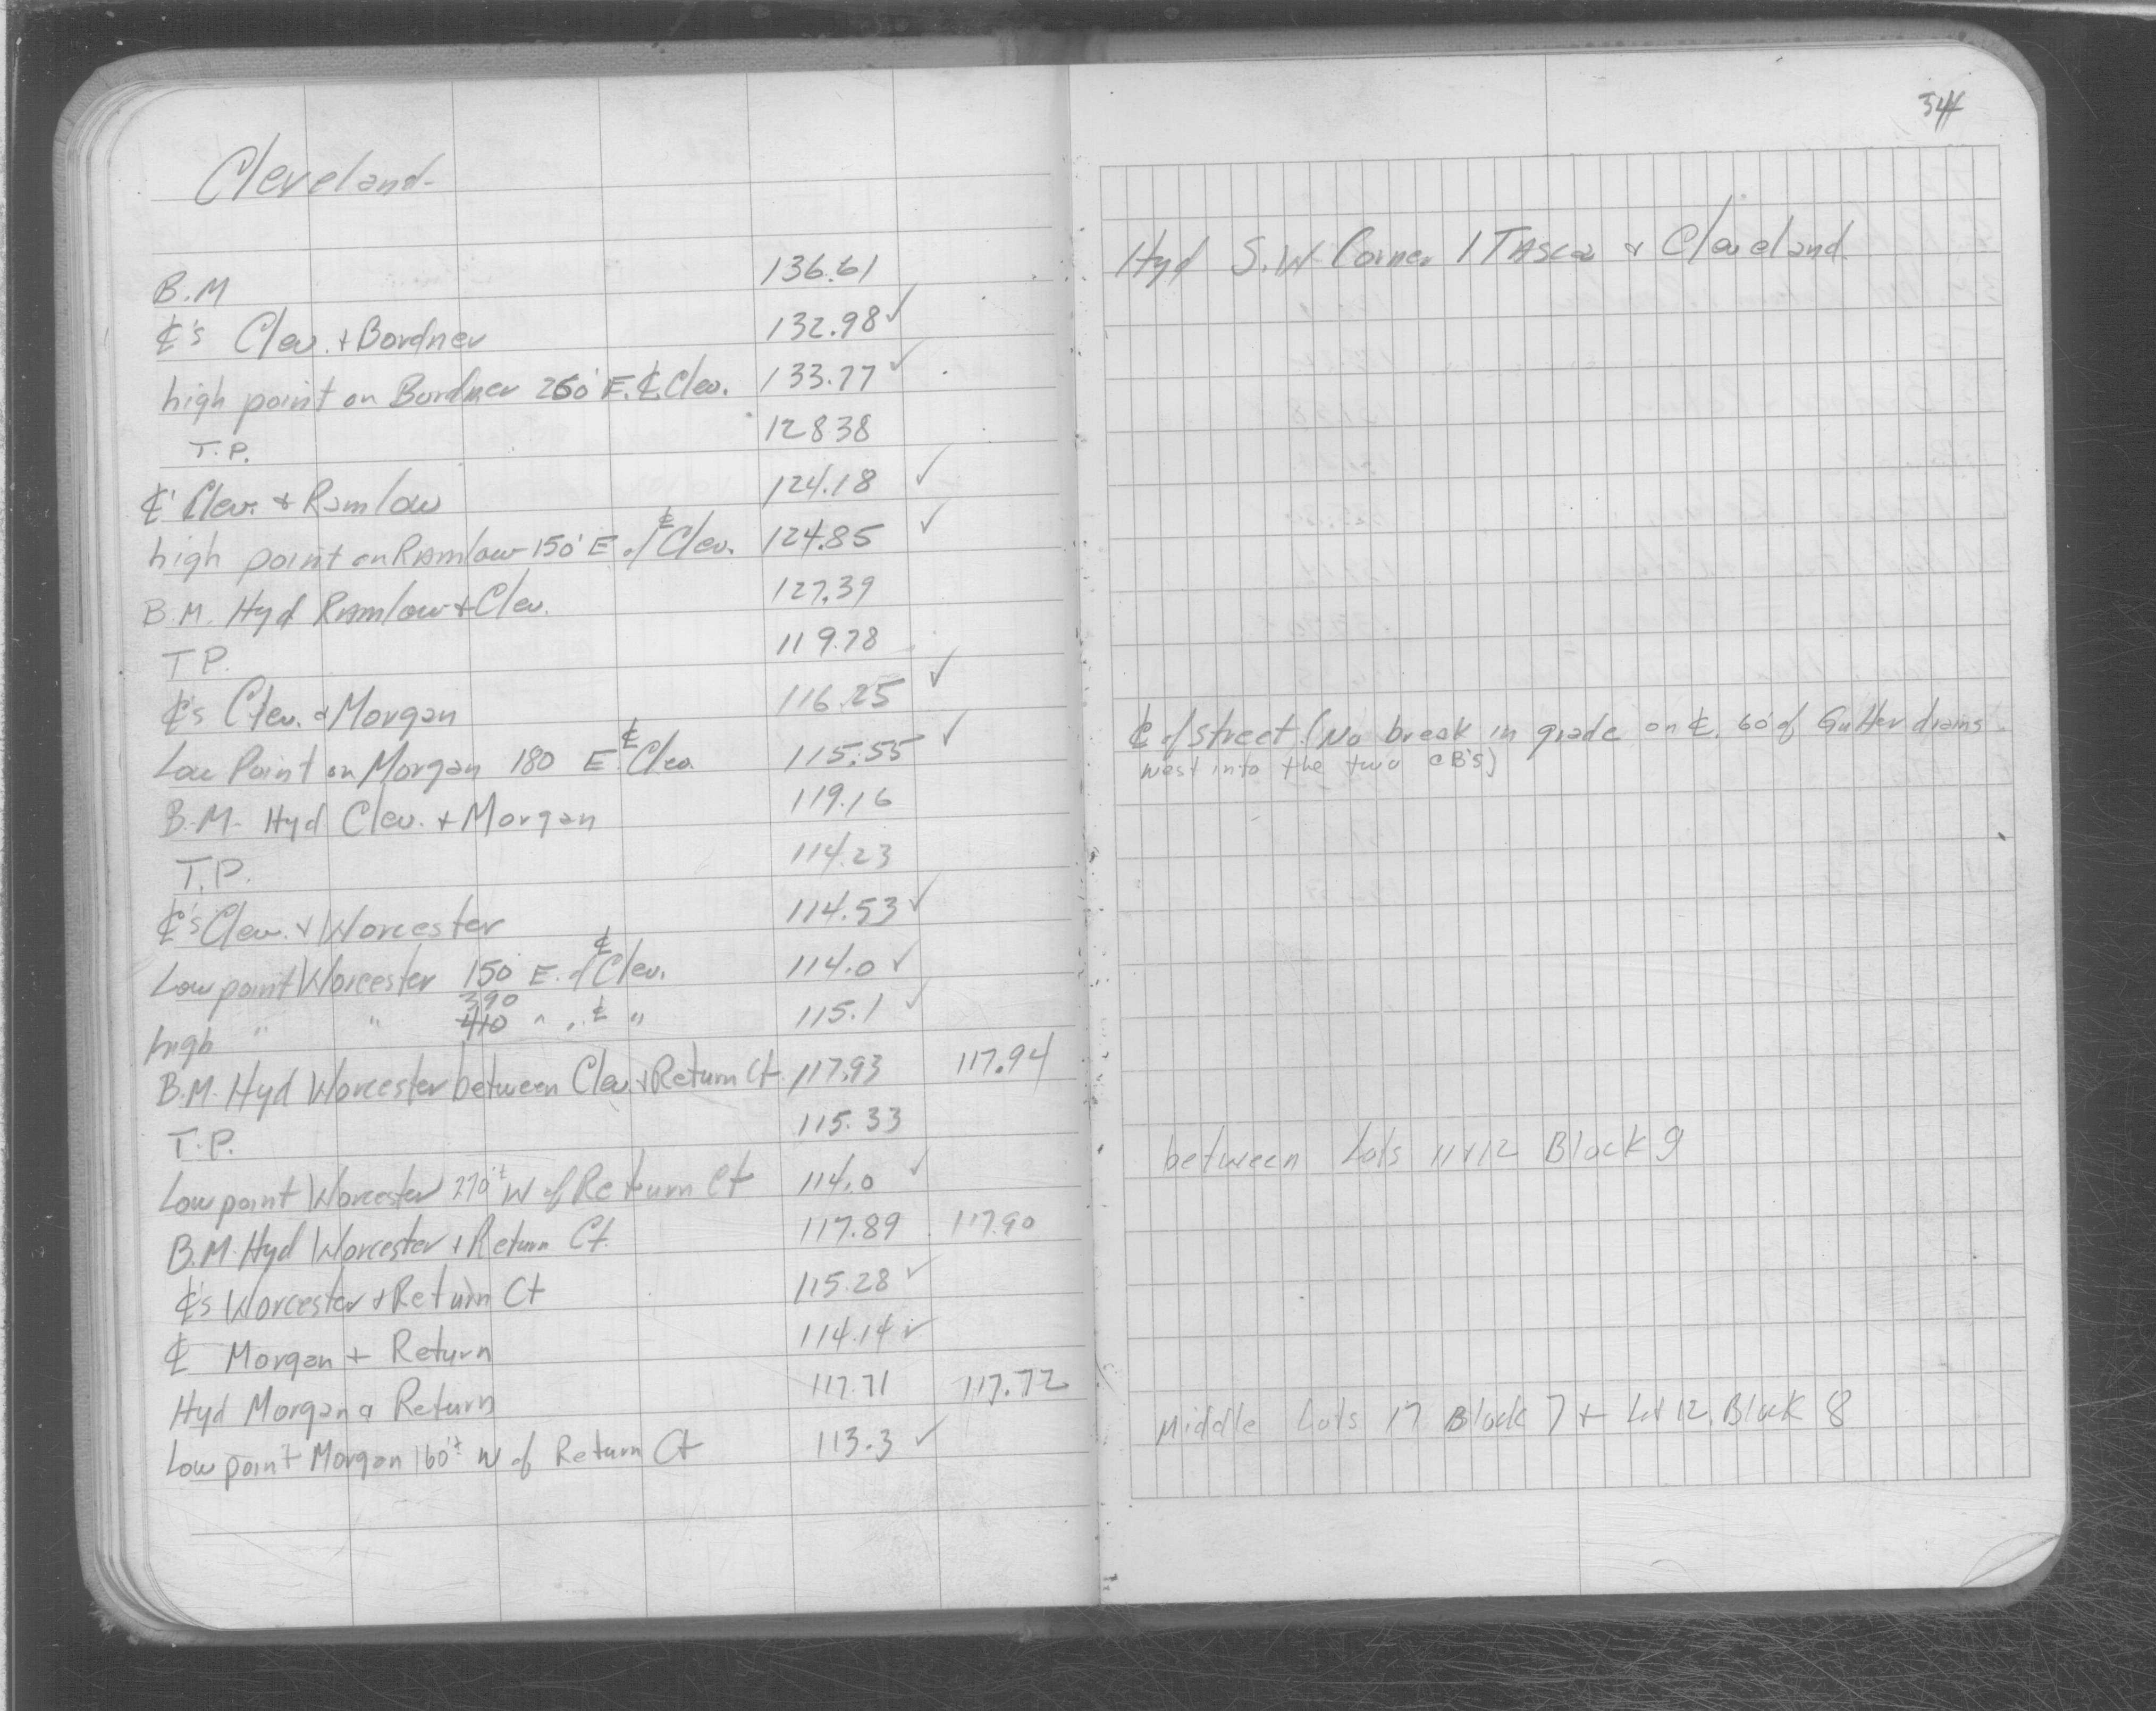 Cleveland-
B.M 136.61
℄'s Clev. + Bordner 132.98 ✓
high point on Bordner 260' E. ℄ Clev. 133.77 ✓
T.P. 128.38
℄' Clev. + Ramlow 124.18 ✓
high point on Ramlow 150' E of ℄ Clev. 124.85 ✓
B.M. Hyd Ramlow + Clev. 127.39
T.P. 119.78
℄'s Clev. + Morgan 116.25 ✓
Low Point on Morgan 180 E ℄ Clev. 115.55 ✓
B.M. Hyd Clev. + Morgan 119.16
T.P. 114.23
℄'s Clev. + Worcester 114.53 ✓
Low point Worcester 150' E. of ℄ Clev. 114.0 ✓
390
high " " 410 " " ℄ " 115.1 ✓
B.M. Hyd Worcester between Clev. + Return Ct 117.93 117.94
T.P. 115.33
Low point Worcester 270'± W of Return Ct 114.0 ✓
B.M. Hyd Worcester + Return Ct. 117.89 117.90
℄'s Worcester + Return Ct 115.28 ✓
℄ Morgan + Return 114.14 ✓
Hyd Morgan + Return 117.71 117.72
Low point Morgan 160'± W of Return Ct 113.3 ✓
34
Hyd S.W Corner ITASCA + Cleveland.
℄ of street. (No break in grade on ℄. 60' of Gutter drains
west into the two CB's)
between Lots 11+12 Block 9
Middle Lots 17 Block 7 + Lot 12. Block 8